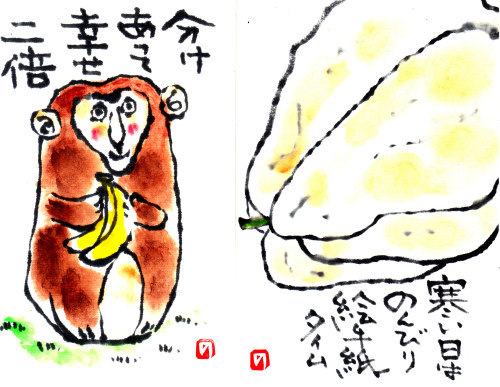 分け
あって
幸せ
二倍
寒い日は
のんびり
絵手紙
タイム